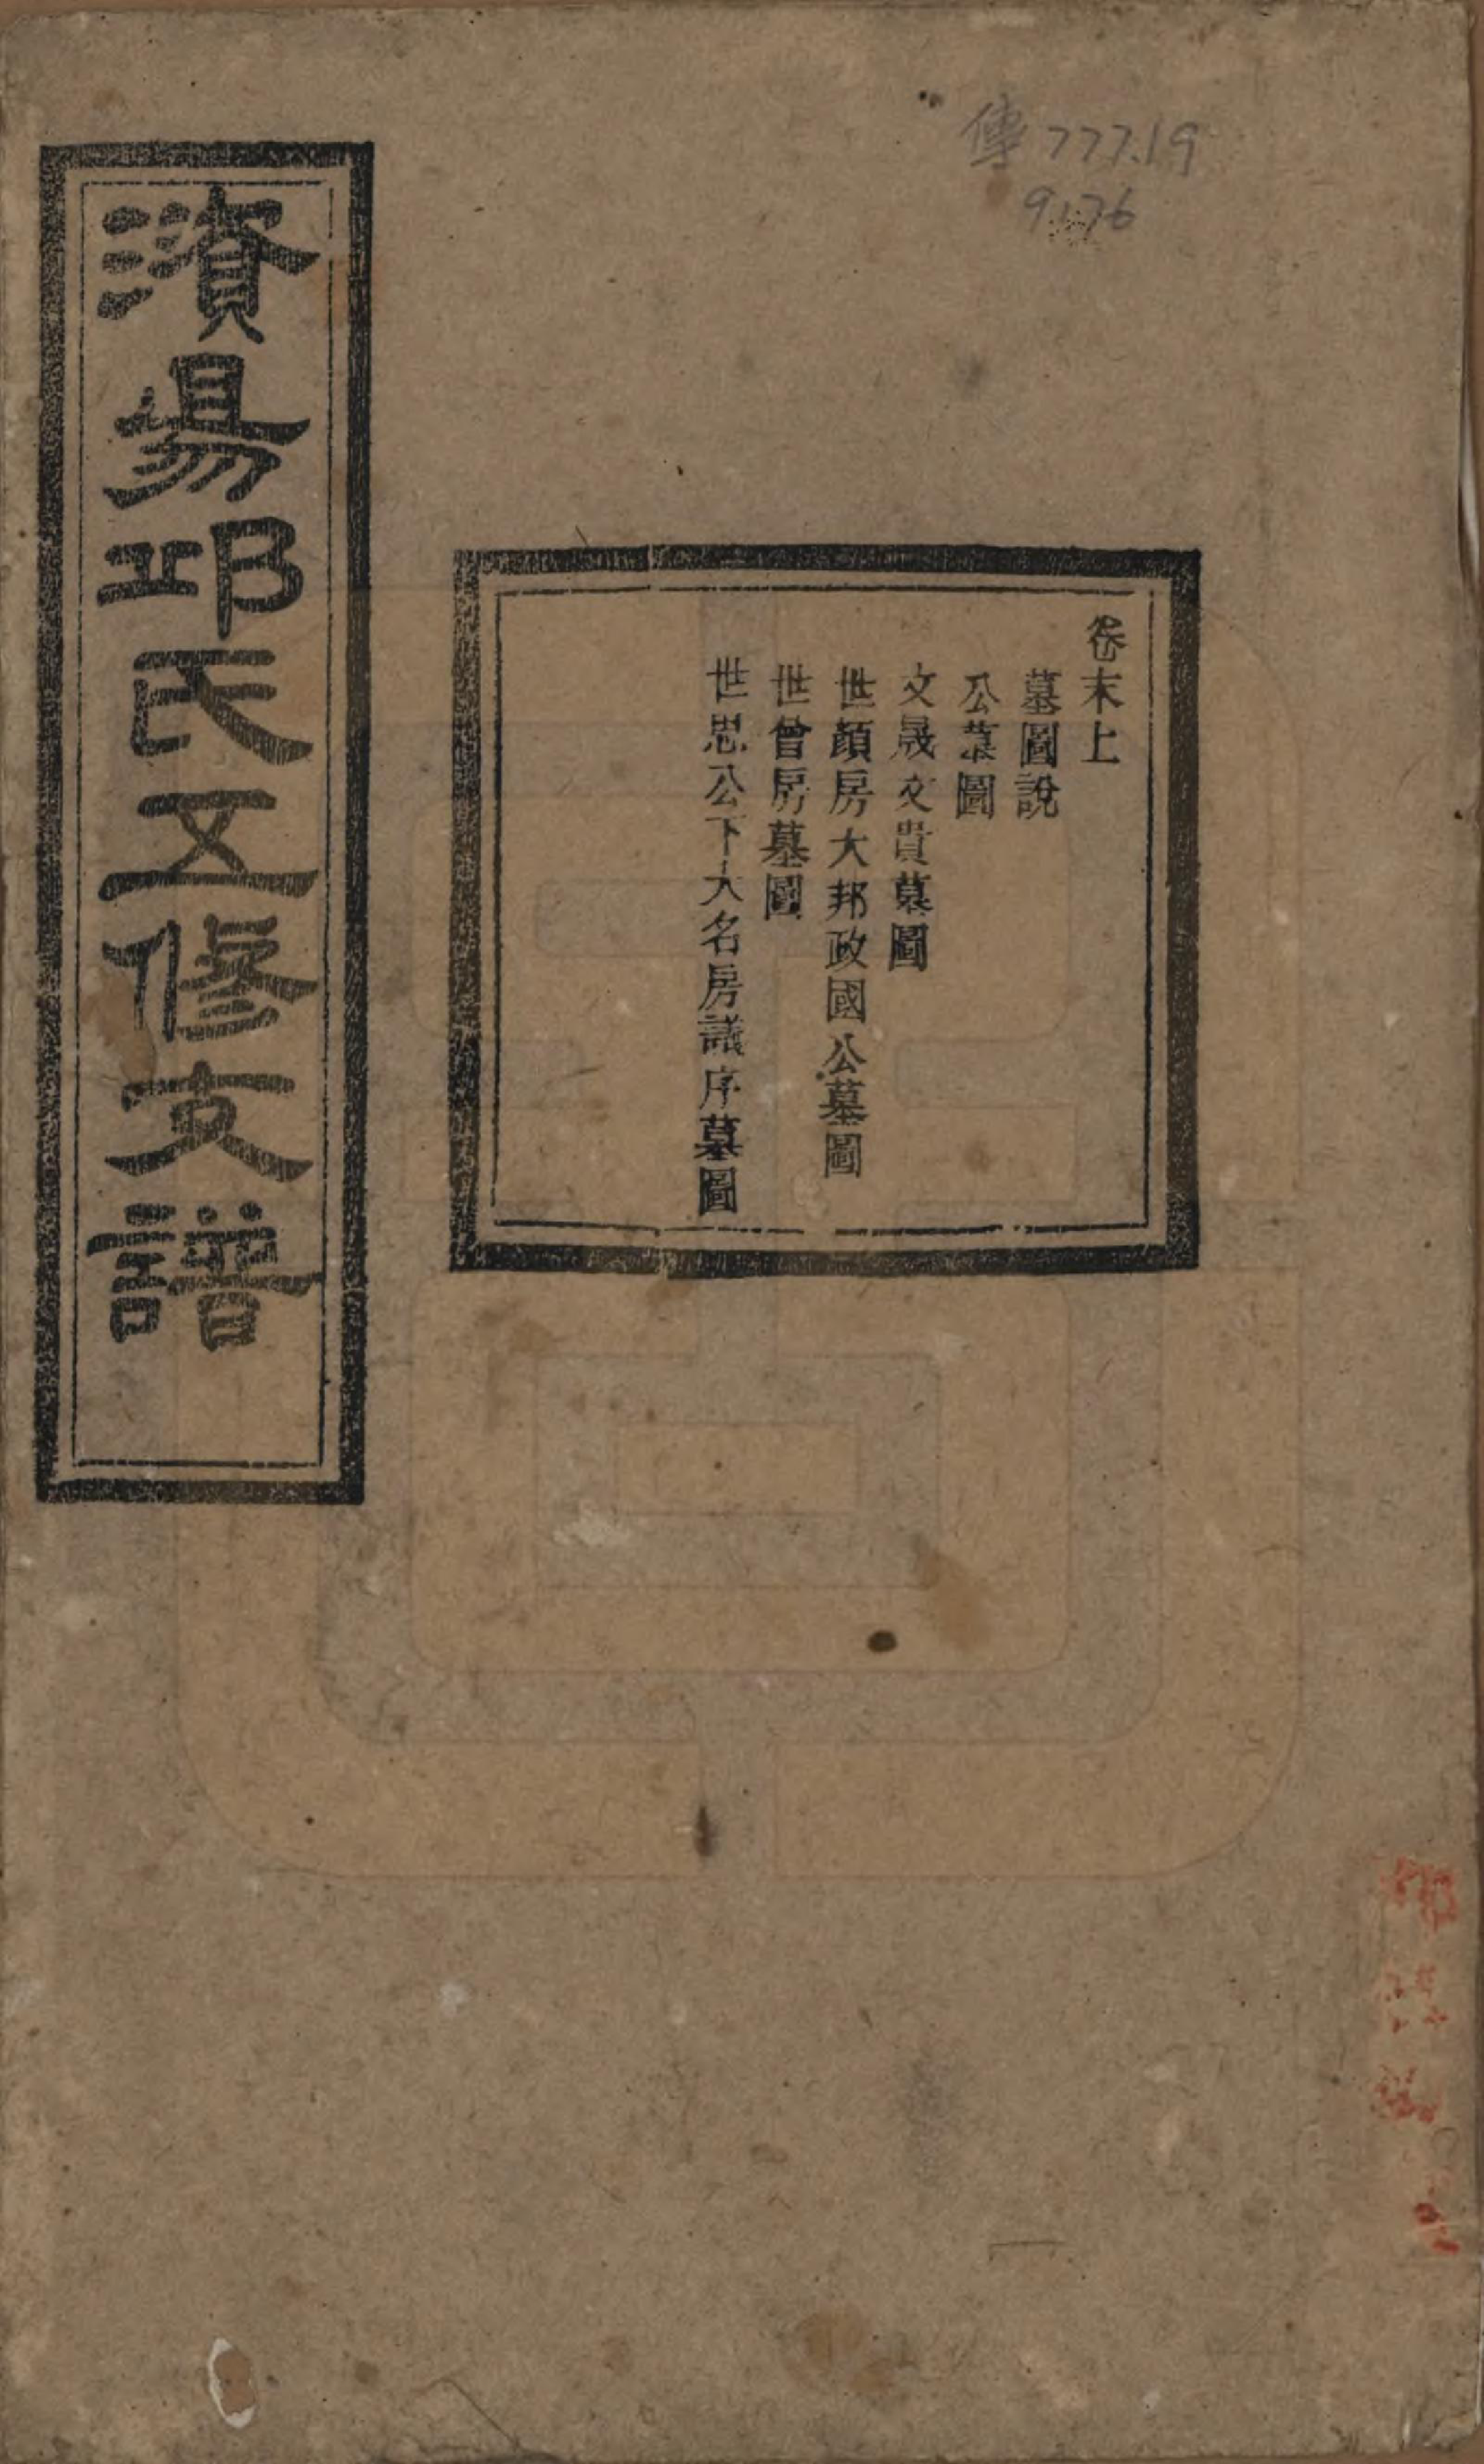 傳777.19
9136
卷末上
墓圖說
公墓圖
文晟文貴墓圖
世顏房大邦政國公墓圖
世曾房墓圖
世思公下大名房議序墓圖
濱昜邱氏五修支譜